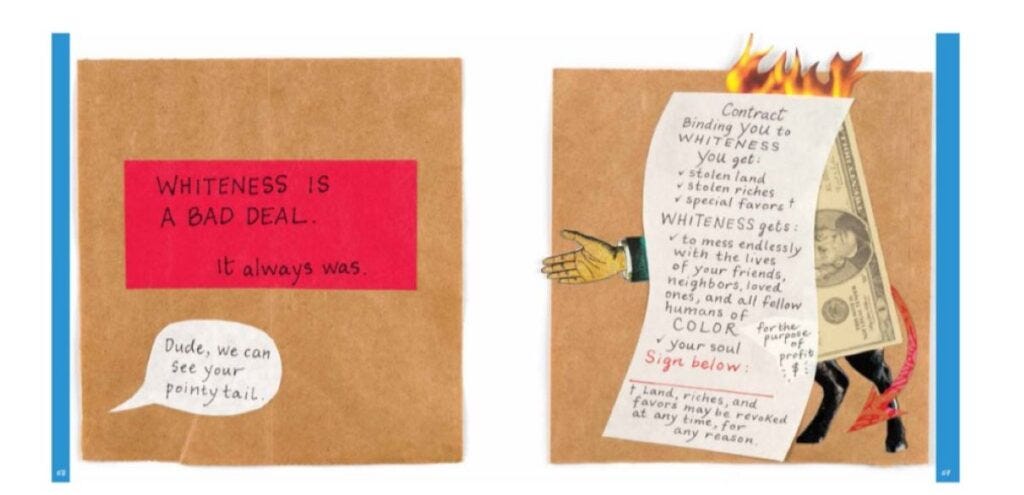 WHITENESS IS
A BAD DEAL.
It always was.
Dude, we can
see your
pointy tail.
Contract
Binding you to
WHITENESS
You get:
✓ stolen land
✓ stolen riches
✓ special favors†
WHITENESS gets:
✓ to mess endlessly
with the lives
of your friends,
neighbors, loved
ones, and all fellow
humans of
COLOR
✓ your soul
for the
purpose
of
profit
$
Sign below:
† Land, riches, and
favors may be revoked
at any time, for
any reason.